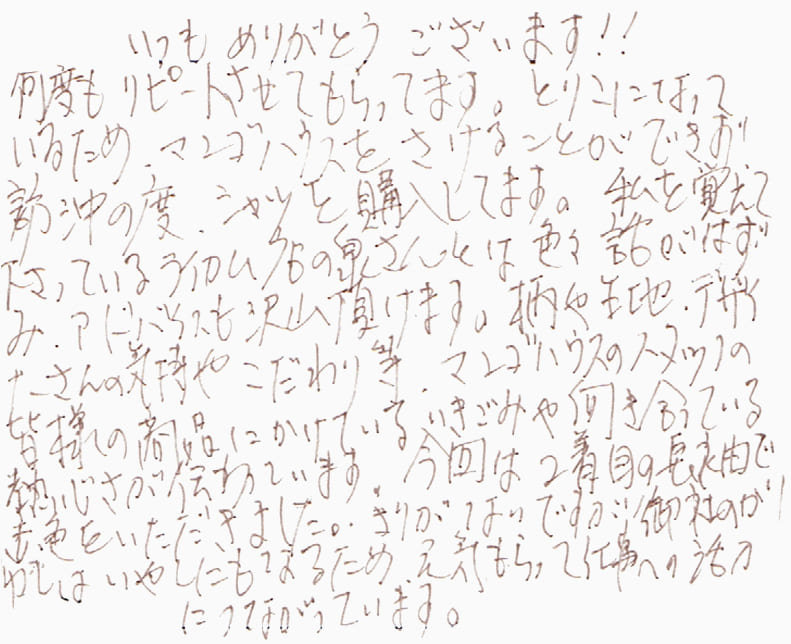 いつも ありがとう ございます!!
何度も リピートさせてもらってます。とりこになって
いるため、マンゴハウスをさけることができず
訪沖の度、シャツを購入してます。私を覚えて
下さっているライカム店の泉さんとは色々話がはず
み、アドバイスも沢山頂けます。柄や生地、デザイ
ナーさんの気持やこだわり等、マンゴハウスのスタッフの
皆様の商品にかけている、いきごみや向き合っている
熱心さが伝わっています。今回は2着目の長袖で
色をいただきました。きりがないですが、御社のかり
わしはいやしにもなるため元気もらって仕事への活力
につながっています。